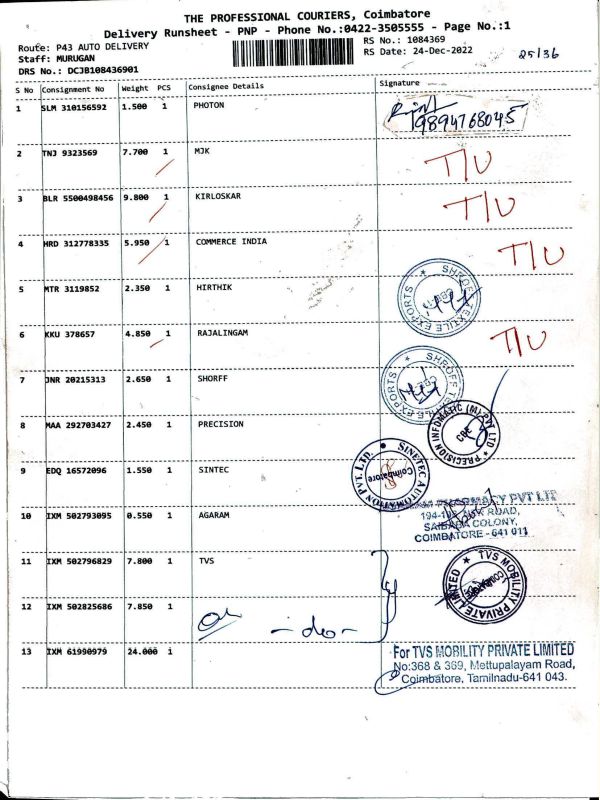 THE PROFESSIONAL COURIERS, Coimbatore
Delivery Runsheet - PNP - Phone No.:0422-3505555 - Page No.:1
Route: P43 AUTO DELIVERY
RS No.: 1084369
Staff: MURUGAN
RS Date: 24-Dec-2022
25/36
DRS No.: DCJB108436901
S No Consignment No Weight PCS Consignee Details Signature
1 SLM 310156592 1.500 1 PHOTON
9894768045
2 TNJ 9323569 7.700 1 MJK T/U
3 BLR 5500498456 9.800 1 KIRLOSKAR T/U
4 HRD 312778335 5.950 1 COMMERCE INDIA T/U
5 MTR 3119852 2.350 1 HIRTHIK
SHROFF TEXTILE EXPORTS
CBE
6 KKU 378657 4.850 1 RAJALINGAM T/U
7 JNR 20215313 2.650 1 SHORFF
SHROFF TEXTILE EXPORTS
CBE
8 MAA 292703427 2.450 1 PRECISION
PRECISION INFOMATIC (M) PVT LTD
CBE
9 EDQ 16572096 1.550 1 SINTEC
SINETEC AUTOMATION PVT. LTD.
Coimbatore
10 IXM 502793095 0.550 1 AGARAM
PHARMACY PVT LTD
ROAD,
SAIBABA COLONY,
COIMBATORE - 641 011
11 IXM 502796829 7.800 1 TVS
TVS MOBILITY PRIVATE LIMITED
12 IXM 502825686 7.850 1
- do -
13 IXM 61990979 24.000 1
For TVS MOBILITY PRIVATE LIMITED
No:368 & 369, Mettupalayam Road,
Coimbatore, Tamilnadu-641 043.